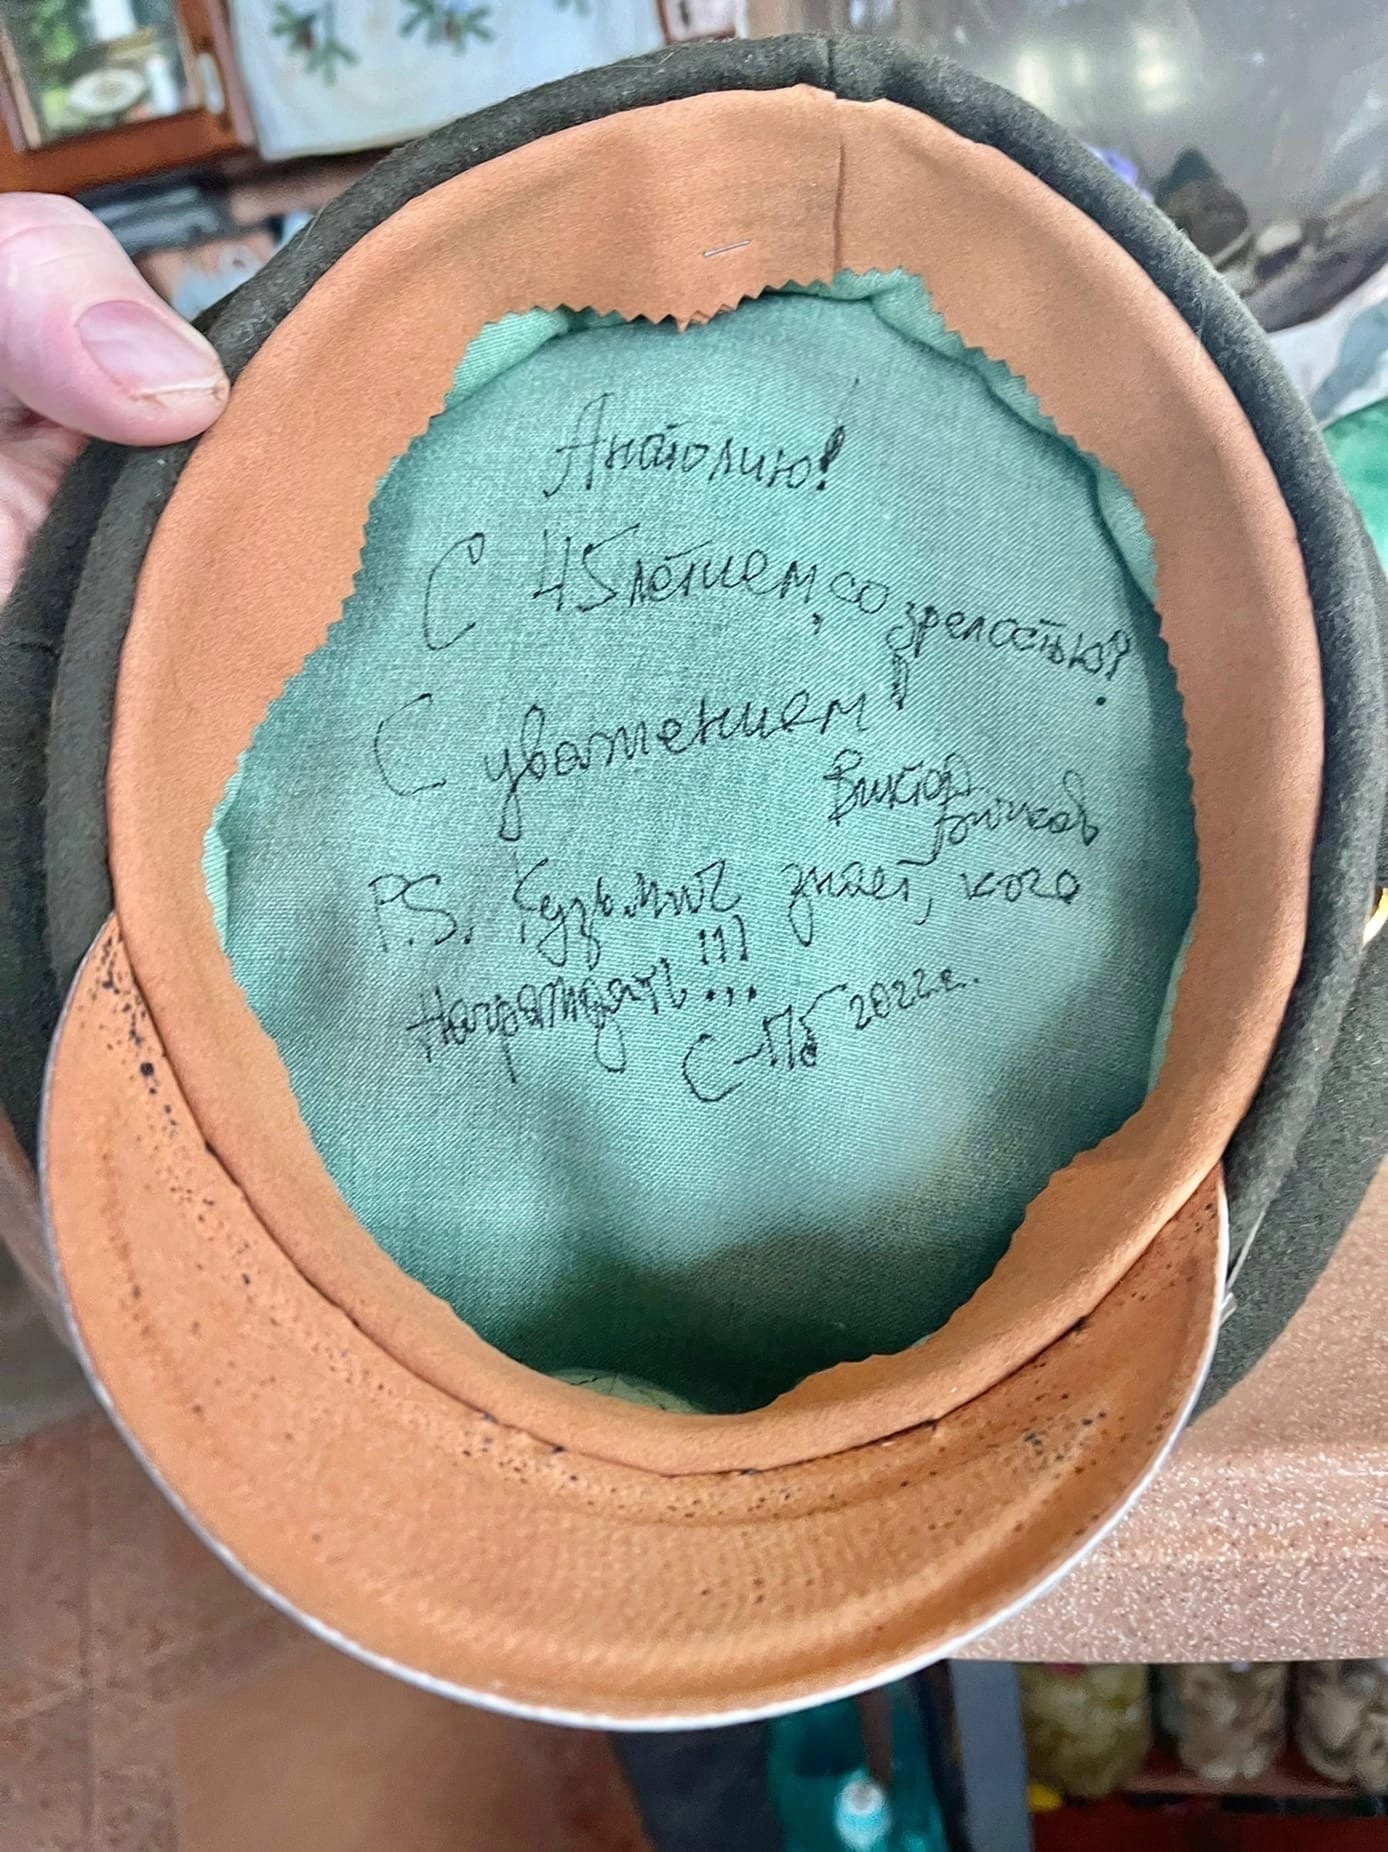 Анатолию!
С 45летием, со зрелостью!
С уважением!
Виктор
Бычков
P.S. Кузьмич знает, кого
награждать!!!
С-Пб 2022г.